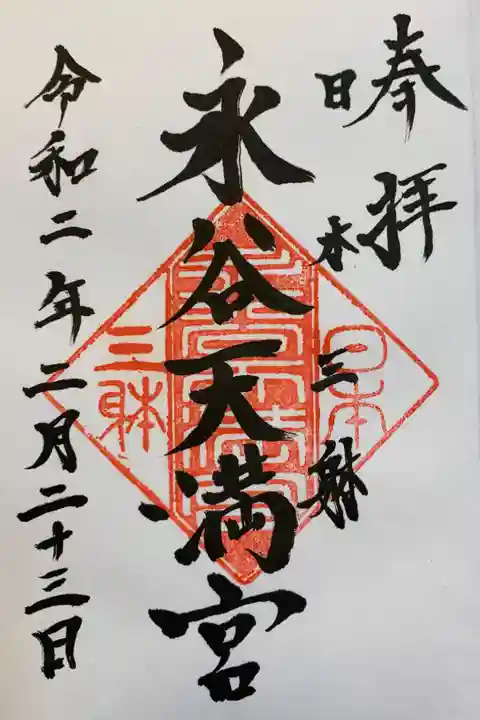 奉拝
日本三躰
永谷天満宮
令和二年二月二十三日
日本
三躰